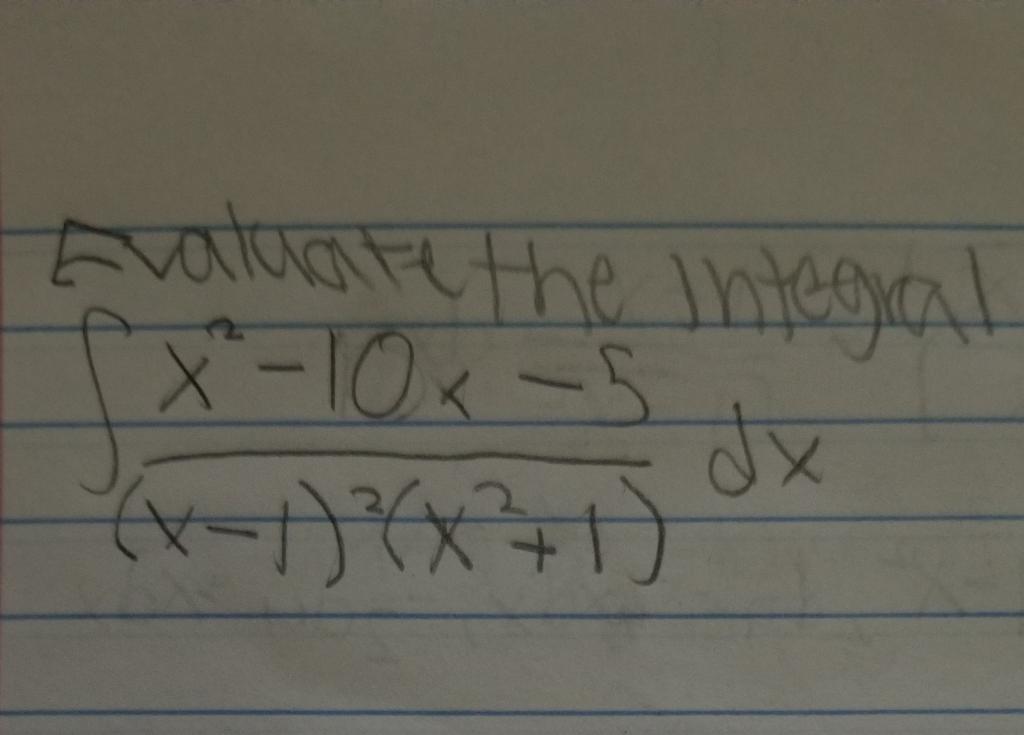 Evaluate the Integral
∫ x² - 10x - 5 dx
(x-1)²(x²+1)